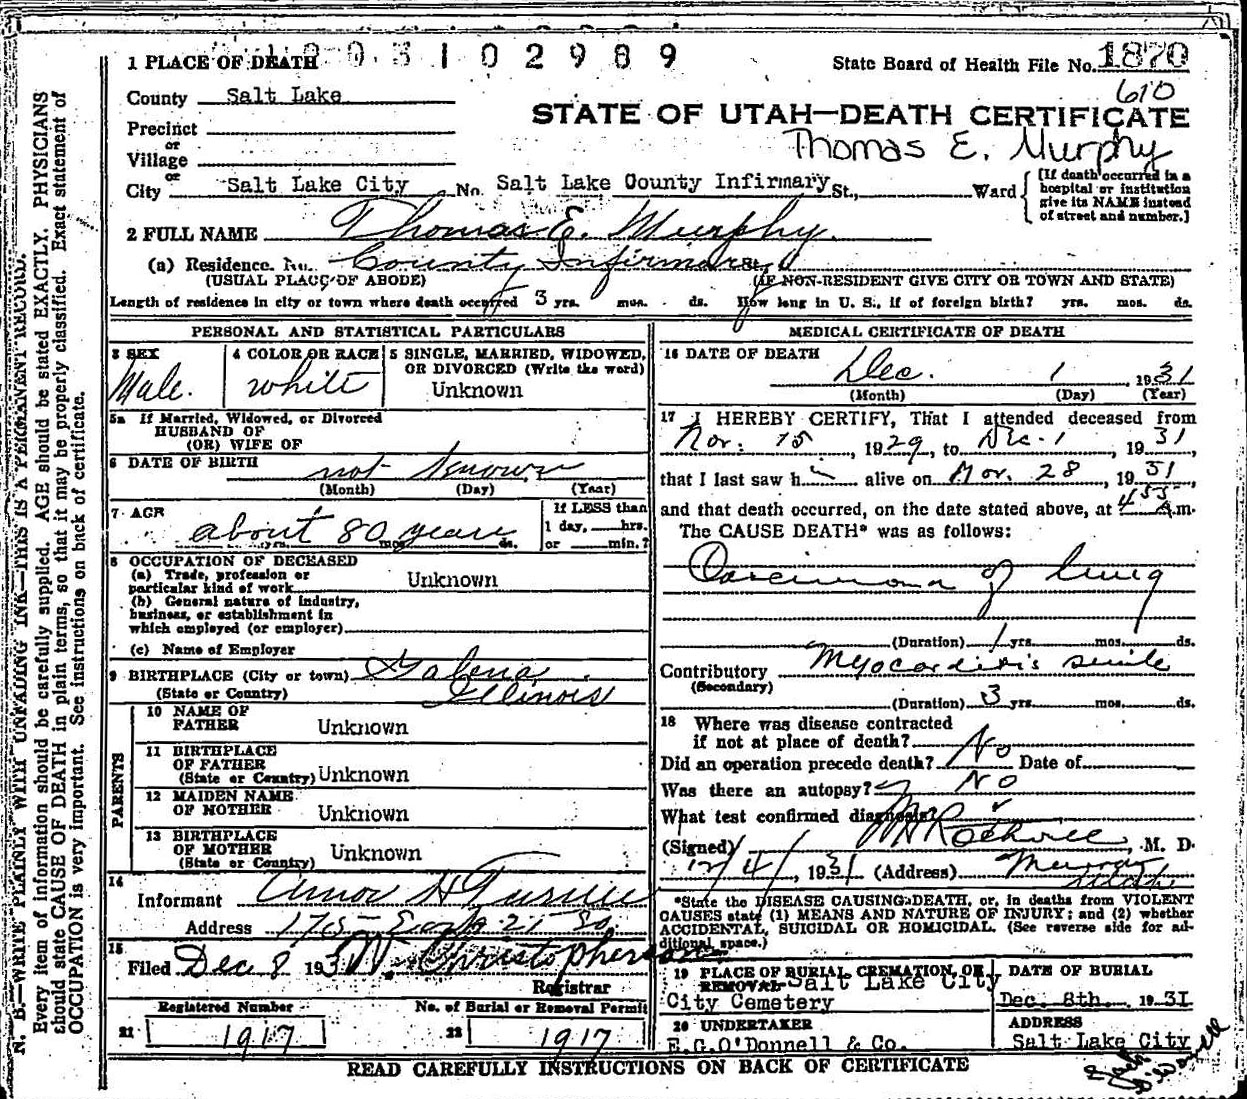 1 PLACE OF DEATH
State Board of Health File No. 1870
610
County Salt Lake
STATE OF UTAH—DEATH CERTIFICATE
Precinct
or
Village
Thomas E. Murphy
or
City Salt Lake City No. Salt Lake County Infirmary St., Ward
[If death occurred in a
hospital or institution
give its NAME instead
of street and number.]
2 FULL NAME Thomas E. Murphy
(a) Residence. No. County Infirmary St.
(USUAL PLACE OF ABODE) (IF NON-RESIDENT GIVE CITY OR TOWN AND STATE)
Length of residence in city or town where death occurred 3 yrs. mos. ds. How long in U. S., if of foreign birth? yrs. mos. ds.
PERSONAL AND STATISTICAL PARTICULARS
3 SEX
Male.
4 COLOR OR RACE
White
5 SINGLE, MARRIED, WIDOWED,
OR DIVORCED (Write the word)
Unknown
5a If Married, Widowed, or Divorced
HUSBAND OF
(OR) WIFE OF
6 DATE OF BIRTH not known
(Month) (Day) (Year)
7 AGE
about 80 years
yrs. mos. ds.
If LESS than
1 day, hrs.
or min.?
8 OCCUPATION OF DECEASED
(a) Trade, profession or
particular kind of work Unknown
(b) General nature of industry,
business, or establishment in
which employed (or employer)
(c) Name of Employer
9 BIRTHPLACE (City or town) Galena,
(State or Country) Illinois
PARENTS
10 NAME OF
FATHER Unknown
11 BIRTHPLACE
OF FATHER
(State or Country) Unknown
12 MAIDEN NAME
OF MOTHER Unknown
13 BIRTHPLACE
OF MOTHER
(State or Country) Unknown
14
Informant
Address 175 East 21 So.
15
Filed Dec 8 1931 W. Christopherson
Registrar
Registered Number No. of Burial or Removal Permit
21 1917 22 1917
MEDICAL CERTIFICATE OF DEATH
16 DATE OF DEATH
Dec. 1, 1931
(Month) (Day) (Year)
17 I HEREBY CERTIFY, That I attended deceased from
Nov. 15, 1929, to Dec. 1, 1931
that I last saw h alive on Nov. 28, 1931,
and that death occurred, on the date stated above, at 455 A.m.
The CAUSE DEATH* was as follows:
Carcinoma of lung
(Duration) 1 yrs. mos. ds.
Contributory Myocarditis senile
(Secondary)
(Duration) 3 yrs. mos. ds.
18 Where was disease contracted
if not at place of death?
Did an operation precede death? No Date of
Was there an autopsy? No
What test confirmed diagnosis?
(Signed) Rothwell, M. D.
12/4/, 1931 (Address) Murray
Utah
*State the DISEASE CAUSING DEATH, or, in deaths from VIOLENT
CAUSES state (1) MEANS AND NATURE OF INJURY; and (2) whether
ACCIDENTAL, SUICIDAL OR HOMICIDAL. (See reverse side for ad-
ditional space.)
19 PLACE OF BURIAL, CREMATION, OR
REMOVAL Salt Lake City
City Cemetery
DATE OF BURIAL
Dec. 8th. 1931
20 UNDERTAKER
E.G.O'Donnell & Co.
ADDRESS
Salt Lake City
READ CAREFULLY INSTRUCTIONS ON BACK OF CERTIFICATE
N. B.—WRITE PLAINLY WITH UNFADING INK—THIS IS A PERMANENT RECORD.
Every item of information should be carefully supplied. AGE should be stated EXACTLY. PHYSICIANS
should state CAUSE OF DEATH in plain terms, so that it may be properly classified. Exact statement of
OCCUPATION is very important. See instructions on back of certificate.